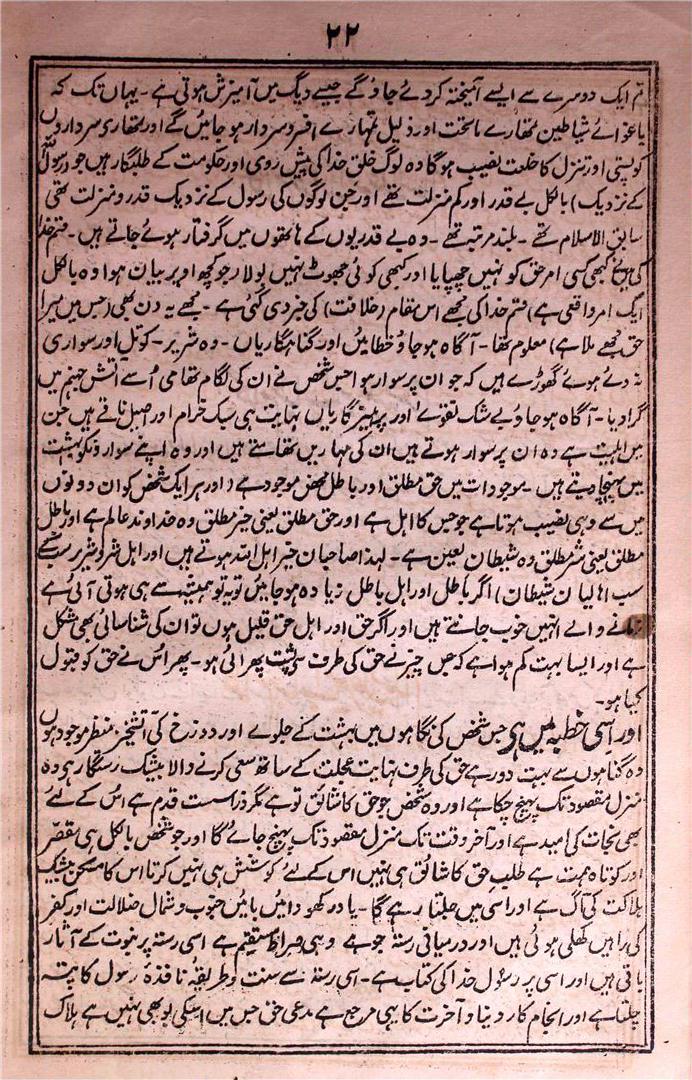 ۲۲
تم ایک دوسرے سے ایسے آمیختہ کردئے جاؤگے جیسے دیگ میں آمیزش ہوتی ہے۔ یہاں تک کہ
باغوائے شیاطین تمھارے ماتحت اور ذلیل تمہارے افسر و سردار ہوجائیں گے اور تمھاری سرداروں
کو پستی اور تنزل کا خلعت نصیب ہوگا وہ لوگ خلق خدا کی پیش روی اور حکومت کے طلبگار ہیں جو رسول اللہ
کے نزدیک) بالکل بے قدر اور کم منزلت تھے اور جن لوگوں کی رسول کے نزدیک قدر و منزلت تھی
سابق الاسلام تھے۔ بلند مرتبہ تھے۔ وہ بے قدریوں کے ہاتھوں میں گرفتار ہوئے جاتے ہیں۔ قسم خدا
کی میں نے کبھی کسی امر حق کو نہیں چھپایا اور کبھی کوئی جھوٹ نہیں بولا (جو کچھ اوپر بیان ہوا وہ بالکل
ایک امر واقعی ہے) قسم خدا کی مجھے اس مقام (خلافت) کی خبر دی گئی ہے۔ مجھے یہ دن بھی (جس میں میرا
حق مجھے ملا ہے) معلوم تھا۔ آگاہ ہوجاؤ خطائیں اور گناہگاریاں۔ وہ شریر۔ کوتل اور سواری
نہ دئے ہوئے گھوڑے ہیں کہ جو ان پر سوار ہوا جس شخص نے ان کی لگام تھامی اُسے آتش جہنم میں
گرا دیا۔ آگاہ ہوجاؤ بے شک تقوےٰ اور پرہیزگاریاں نہایت ہی سبک خرام اور اصیل ناقے ہیں جن
میں اہلیت ہے وہ ان پر سوار ہوتے ہیں ان کی مہاریں تھامتے ہیں اور وہ اپنے سواروں کو بہشت
میں پہنچا دیتے ہیں۔ موجودات میں حق مطلق اور باطل محض موجود ہے (اور ہر ایک شخص کو ان دونوں
میں سے وہی نصیب ہوتا ہے جو جس کا اہل ہے اور حق مطلق یعنی خیر مطلق وہ خداوند عالم ہے اور باطل
مطلق یعنی شر مطلق وہ شیطان لعین ہے۔ لہذا صاحبان خیر اہل اللہ ہوتے ہیں اور اہل شر و شریر سب کے
سب اہالیان شیطان) اگر باطل اور اہل باطل زیادہ ہوجائیں تو یہ تو ہمیشہ سے ہی ہوتی آئی ہے
زمانے والے انہیں خوب جانتے ہیں اور اگر حق اور اہل حق قلیل ہوں تو ان کی شناسائی بھی مشکل
ہے اور ایسا بہت کم ہوا ہے کہ جس چیز نے حق کی طرف سے پشت پھرائی ہو۔ پھر اس نے حق کو قبول
کیا ہو۔
اور اسی خطبہ میں ہی جس شخص کی نگاہوں میں بہشت کے جلوے اور دوزخ کی آتشخیز منظر موجود ہوں
وہ گناہوں سے بہت دور ہے حق کی طرف نہایت عجلت کے ساتھ سعی کرنے والا بیشک رستگار ہی وہ
منزل مقصود تک پہنچ چکا ہے اور وہ شخص جو حق کا شائق تو ہے مگر ذرا سست قدم ہے اس کے لئے
بھی نجات کی امید ہے اور آخر وقت تک منزل مقصود تک پہنچ جائے گا اور جو شخص بالکل ہی مقصّر
اور کوتاہ ہمت ہے طلب حق کا شائق ہی نہیں اس کے لئے کوشش ہی نہیں کرتا اس کا مسکن بیشک
ہلاکت کی آگ ہے اور اسی میں جلتا رہے گا۔ یاد رکھو دائیں بائیں جنوب و شمال ضلالت اور کفر
کی راہیں کھلی ہوئی ہیں اور درمیانی رستہ جو ہے وہی صراط مستقیم ہے اسی رستہ پر نبوت کے آثار
باقی ہیں اور اسی پر رسول خدا کی کتاب ہے۔ اسی رستہ سے سنت و طریقہ نافذۂ رسول کا پتہ
چلتا ہے اور انجام کار دنیا و آخرت کا یہی مرجع ہے مدعی حق جس میں اسکی بو بھی نہیں ہے ہلاک